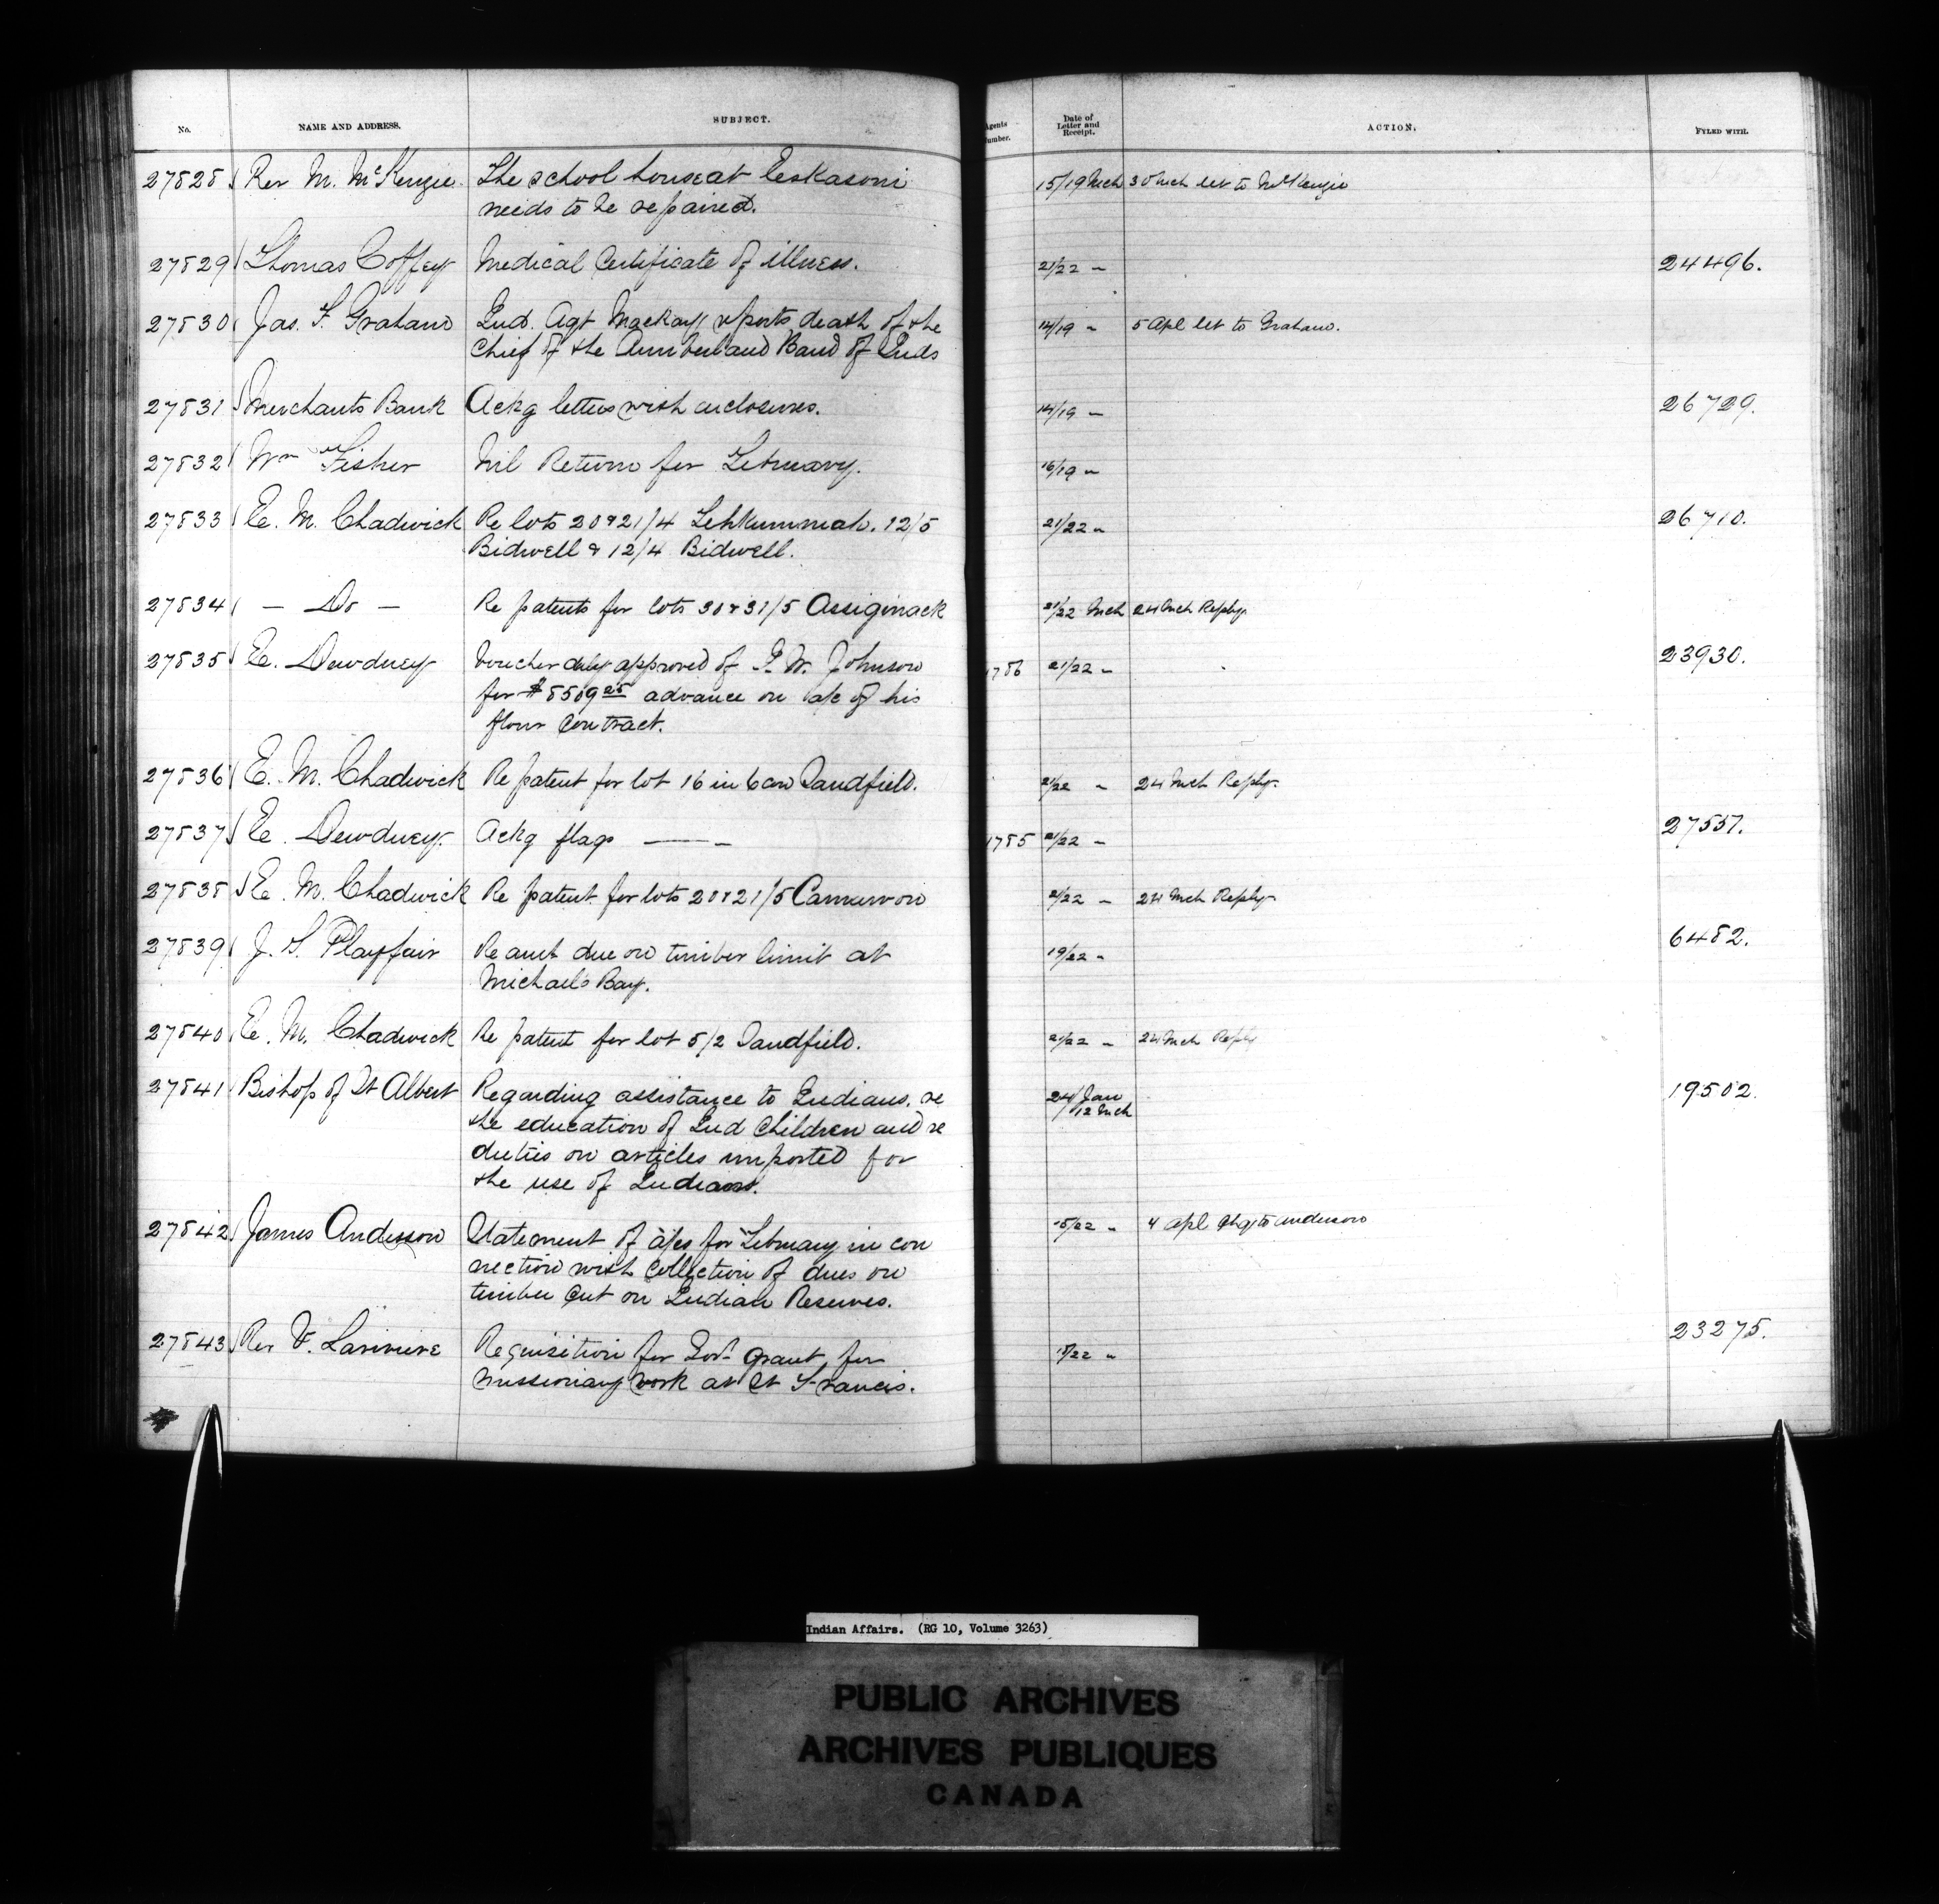 No. NAME AND ADDRESS. SUBJECT. Agents Number. Date of Letter and Receipt. ACTION. FYLED WITH.
27828 Rev M. McKenzie. The school house at Eskasoni 15/19 Mch 30 Mch let to McKenzie
needs to be repaired.
27829 Thomas Coffey Medical Certificate of illness. 21/22 " 24496.
27830 Jas. F. Graham Ind. Agt Mackay reports death of the 14/19 " 5 Apl let to Graham.
Chief of the Cumberland Band of Inds
27831 Merchants Bank Ackg letters with enclosures. 14/19 " 26729.
27832 Wm Fisher Nil Return for February. 16/19 "
27833 E. M. Chadwick Re lots 20 & 21/4 Tehkummah. 12/5 21/22 " 26710.
Bidwell & 12/4 Bidwell.
27834 — Do — Re patents for lots 30 & 31/5 Assiginack 21/22 Mch 24 Mch Reply.
27835 E. Dewdney Voucher duly approved of I. W. Johnson 1786 21/22 " 23930.
for $8509 25 advance on a/c of his
flour Contract.
27836 E. M. Chadwick Re patent for lot 16 in 6 con Sandfield. 21/22 " 24 Mch Reply.
27837 E. Dewdney. Ackg flags — " 1785 21/22 " 27557.
27838 E. M. Chadwick Re patent for lots 20 & 21/5 Carnarvon 21/22 " 24 Mch Reply
27839 J. S. Playfair Re amt due on timber limit at 19/22 " 6482.
Michael's Bay.
27840 E. M. Chadwick Re patent for lot 5/2 Sandfield. 21/22 " 24 Mch Reply
27841 Bishop of St Albert Regarding assistance to Indians. re 24 Jan 19502.
the education of Ind Children and re /12 Mch
duties on articles imported for
the use of Indians.
27842 James Anderson Statement of a/cs for February in con 15/22 " 4 Apl to Anderson
nection with Collection of dues on
timber Cut on Indian Reserves.
27843 Rev V. Lariviere Requisition for Govt grant for 15/22 " 23275.
missionary work at St Francis.
Indian Affairs. (RG 10, Volume 3263)
PUBLIC ARCHIVES
ARCHIVES PUBLIQUES
CANADA